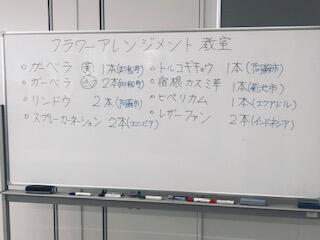 フラワーアレンジメント 教室
○ ガーベラ (黄) 1本(御船町)
○ ガーベラ (ピンク) 2本(御船町)
○ リンドウ 2本(阿蘇市)
○ スプレーカーネーション 2本(コロンビア)
○ トルコギキョウ 1本(阿蘇市)
○ 宿根カスミ草 1本(菊池市)
○ ヒペリカム 1本(エクアドル)
○ レザーファン 2本(インドネシア)